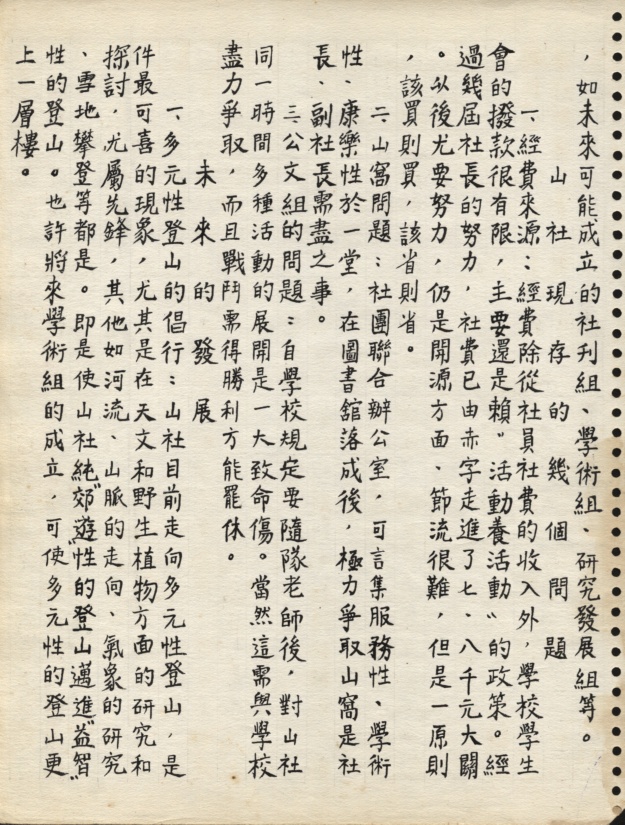 ，如未來可能成立的社刊組、學術組、研究發展組等。
山社現存的幾個問題
一、經費來源：經費除從社員社費的收入外，學校學生
會的撥款很有限，主要還是賴〝活動養活動〞的政策。經
過幾屆社長的努力，社費已由赤字走進了七、八千元大關
。以後尤要努力，仍是開源方面、節流很難，但是一原則
，該買則買，該省則省。
二、山窩問題：社團聯合辦公室，可言集服務性、學術
性、康樂性於一堂，在圖書舘落成後，極力爭取山窩是社
長、副社長需盡之事。
三、公文組的問題：自學校規定要隨隊老師後，對山社
同一時間多種活動的展開是一大致命傷。當然這需與學校
盡力爭取，而且戰鬥需得勝利方能罷休。
未來的發展
一、多元性登山的倡行：山社目前走向多元性登山，是
件最可喜的現象，尤其是在天文和野生植物方面的研究和
探討，尤屬先鋒，其他如河流、山脈的走向、氣象的研究
、雪地攀登等都是。即是使山社純〝郊遊〞性的登山邁進〝益智〞
性的登山。也許將來學術組的成立，可使多元性的登山更
上一層樓。